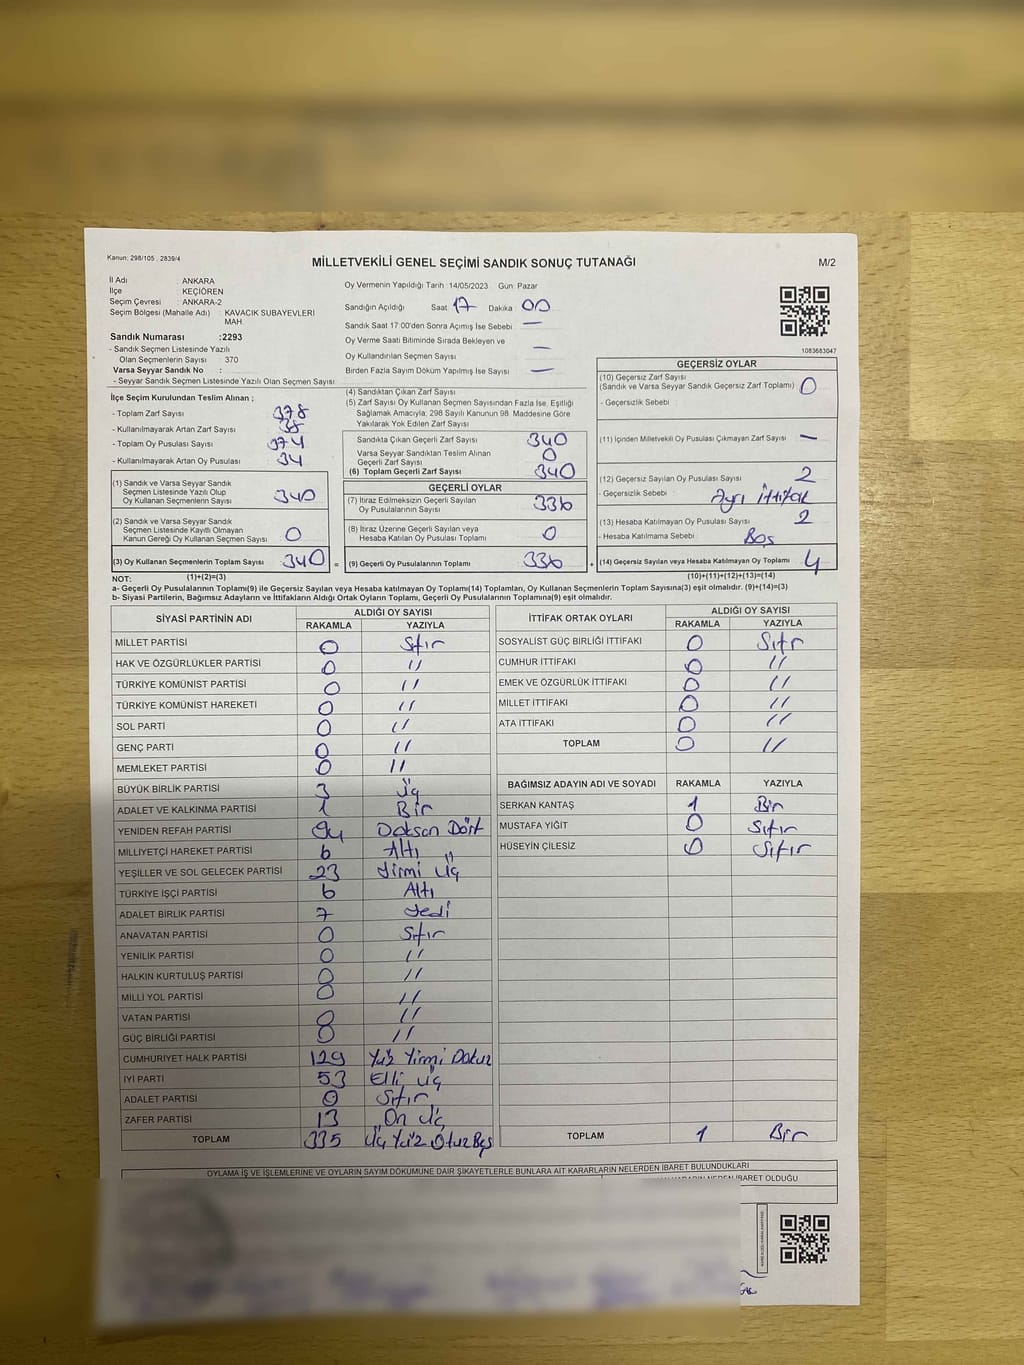 Kanun: 298/105 , 2839/4
MİLLETVEKİLİ GENEL SEÇİMİ SANDIK SONUÇ TUTANAĞI
M/2
İl Adı : ANKARA
İlçe : KEÇİÖREN
Seçim Çevresi : ANKARA-2
Seçim Bölgesi (Mahalle Adı) : KAVACIK SUBAYEVLERİ
MAH.
Sandık Numarası :2293
- Sandık Seçmen Listesinde Yazılı
Olan Seçmenlerin Sayısı : 370
Varsa Seyyar Sandık No :
- Seyyar Sandık Seçmen Listesinde Yazılı Olan Seçmen Sayısı :
Oy Vermenin Yapıldığı Tarih :14/05/2023 Gün: Pazar
Sandığın Açıldığı Saat 17 Dakika : 00
Sandık Saat 17:00'den Sonra Açımış İse Sebebi : —
Oy Verme Saati Bitiminde Sırada Bekleyen ve
Oy Kullandırılan Seçmen Sayısı —
Birden Fazla Sayım Döküm Yapılmış İse Sayısı : —
1083683047
İlçe Seçim Kurulundan Teslim Alınan ;
- Toplam Zarf Sayısı : 378
- Kullanılmayarak Artan Zarf Sayısı : 38
- Toplam Oy Pusulası Sayısı : 374
- Kullanılmayarak Artan Oy Pusulası : 34
(1) Sandık ve Varsa Seyyar Sandık
Seçmen Listesinde Yazılı Olup
Oy Kullanan Seçmenlerin Sayısı : 340
(2) Sandık ve Varsa Seyyar Sandık
Seçmen Listesinde Kayıtlı Olmayan
Kanun Gereği Oy Kullanan Seçmen Sayısı : 0
(3) Oy Kullanan Seçmenlerin Toplam Sayısı : 340 =
(4) Sandıktan Çıkan Zarf Sayısı :
(5) Zarf Sayısı Oy Kullanan Seçmen Sayısından Fazla İse, Eşitliği
Sağlamak Amacıyla; 298 Sayılı Kanunun 98. Maddesine Göre
Yakılarak Yok Edilen Zarf Sayısı :
Sandıkta Çıkan Geçerli Zarf Sayısı : 340
Varsa Seyyar Sandıktan Teslim Alınan
Geçerli Zarf Sayısı : 0
(6) Toplam Geçerli Zarf Sayısı : 340
GEÇERLİ OYLAR
(7) İtiraz Edilmeksizin Geçerli Sayılan
Oy Pusulalarının Sayısı : 336
(8) İtiraz Üzerine Geçerli Sayılan veya
Hesaba Katılan Oy Pusulası Toplamı : 0
(9) Geçerli Oy Pusulalarının Toplamı : 336 +
GEÇERSİZ OYLAR
(10) Geçersiz Zarf Sayısı
(Sandık ve Varsa Seyyar Sandık Geçersiz Zarf Toplamı) : 0
- Geçersizlik Sebebi :
(11) İçinden Milletvekili Oy Pusulası Çıkmayan Zarf Sayısı : —
(12) Geçersiz Sayılan Oy Pusulası Sayısı : 2
- Geçersizlik Sebebi : Ayrı İttifak
(13) Hesaba Katılmayan Oy Pusulası Sayısı : 2
- Hesaba Katılmama Sebebi : Boş
(14) Geçersiz Sayılan veya Hesaba Katılmayan Oy Toplamı : 4
NOT: (1)+(2)=(3)
(10)+(11)+(12)+(13)=(14)
a- Geçerli Oy Pusulalarının Toplamı(9) ile Geçersiz Sayılan veya Hesaba Katılmayan Oy Toplamı(14) Toplamları, Oy Kullanan Seçmenlerin Toplam Sayısına(3) eşit olmalıdır. (9)+(14)=(3)
b- Siyasi Partilerin, Bağımsız Adayların ve İttifakların Aldığı Ortak Oyların Toplamı, Geçerli Oy Pusulalarının Toplamına(9) eşit olmalıdır.
SİYASİ PARTİNİN ADI ALDIĞI OY SAYISI
RAKAMLA YAZIYLA
MİLLET PARTİSİ 0 Sıfır
HAK VE ÖZGÜRLÜKLER PARTİSİ 0 "
TÜRKİYE KOMÜNİST PARTİSİ 0 "
TÜRKİYE KOMÜNİST HAREKETİ 0 "
SOL PARTİ 0 "
GENÇ PARTİ 0 "
MEMLEKET PARTİSİ 0 "
BÜYÜK BİRLİK PARTİSİ 3 Üç
ADALET VE KALKINMA PARTİSİ 1 Bir
YENİDEN REFAH PARTİSİ 94 Doksan Dört
MİLLİYETÇİ HAREKET PARTİSİ 6 Altı
YEŞİLLER VE SOL GELECEK PARTİSİ 23 Yirmi Üç
TÜRKİYE İŞÇİ PARTİSİ 6 Altı
ADALET BİRLİK PARTİSİ 7 Yedi
ANAVATAN PARTİSİ 0 Sıfır
YENİLİK PARTİSİ 0 "
HALKIN KURTULUŞ PARTİSİ 0 "
MİLLİ YOL PARTİSİ 0 "
VATAN PARTİSİ 0 "
GÜÇ BİRLİĞİ PARTİSİ 0 "
CUMHURİYET HALK PARTİSİ 129 Yüz Yirmi Dokuz
İYİ PARTİ 53 Elli Üç
ADALET PARTİSİ 0 Sıfır
ZAFER PARTİSİ 13 On Üç
TOPLAM 335 Üç Yüz Otuz Beş
İTTİFAK ORTAK OYLARI ALDIĞI OY SAYISI
RAKAMLA YAZIYLA
SOSYALİST GÜÇ BİRLİĞİ İTTİFAKI 0 Sıfır
CUMHUR İTTİFAKI 0 "
EMEK VE ÖZGÜRLÜK İTTİFAKI 0 "
MİLLET İTTİFAKI 0 "
ATA İTTİFAKI 0 "
TOPLAM 0 "
BAĞIMSIZ ADAYIN ADI VE SOYADI RAKAMLA YAZIYLA
SERKAN KANTAŞ 1 Bir
MUSTAFA YİĞİT 0 Sıfır
HÜSEYİN ÇİLESİZ 0 Sıfır
TOPLAM 1 Bir
OYLAMA İŞ VE İŞLEMLERİNE VE OYLARIN SAYIM DÖKÜMÜNE DAİR ŞİKAYETLERLE BUNLARA AİT KARARLARIN NELERDEN İBARET BULUNDUKLARI
İBARET OLDUĞU